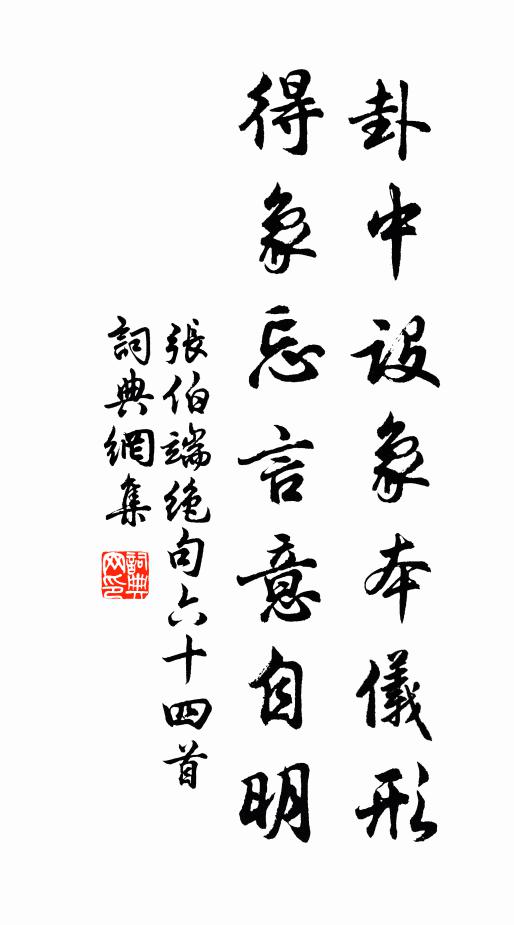 卦中設象本儀形
得象忘言意自明
張伯端絶句六十四首
詞典網集
詞典
网印